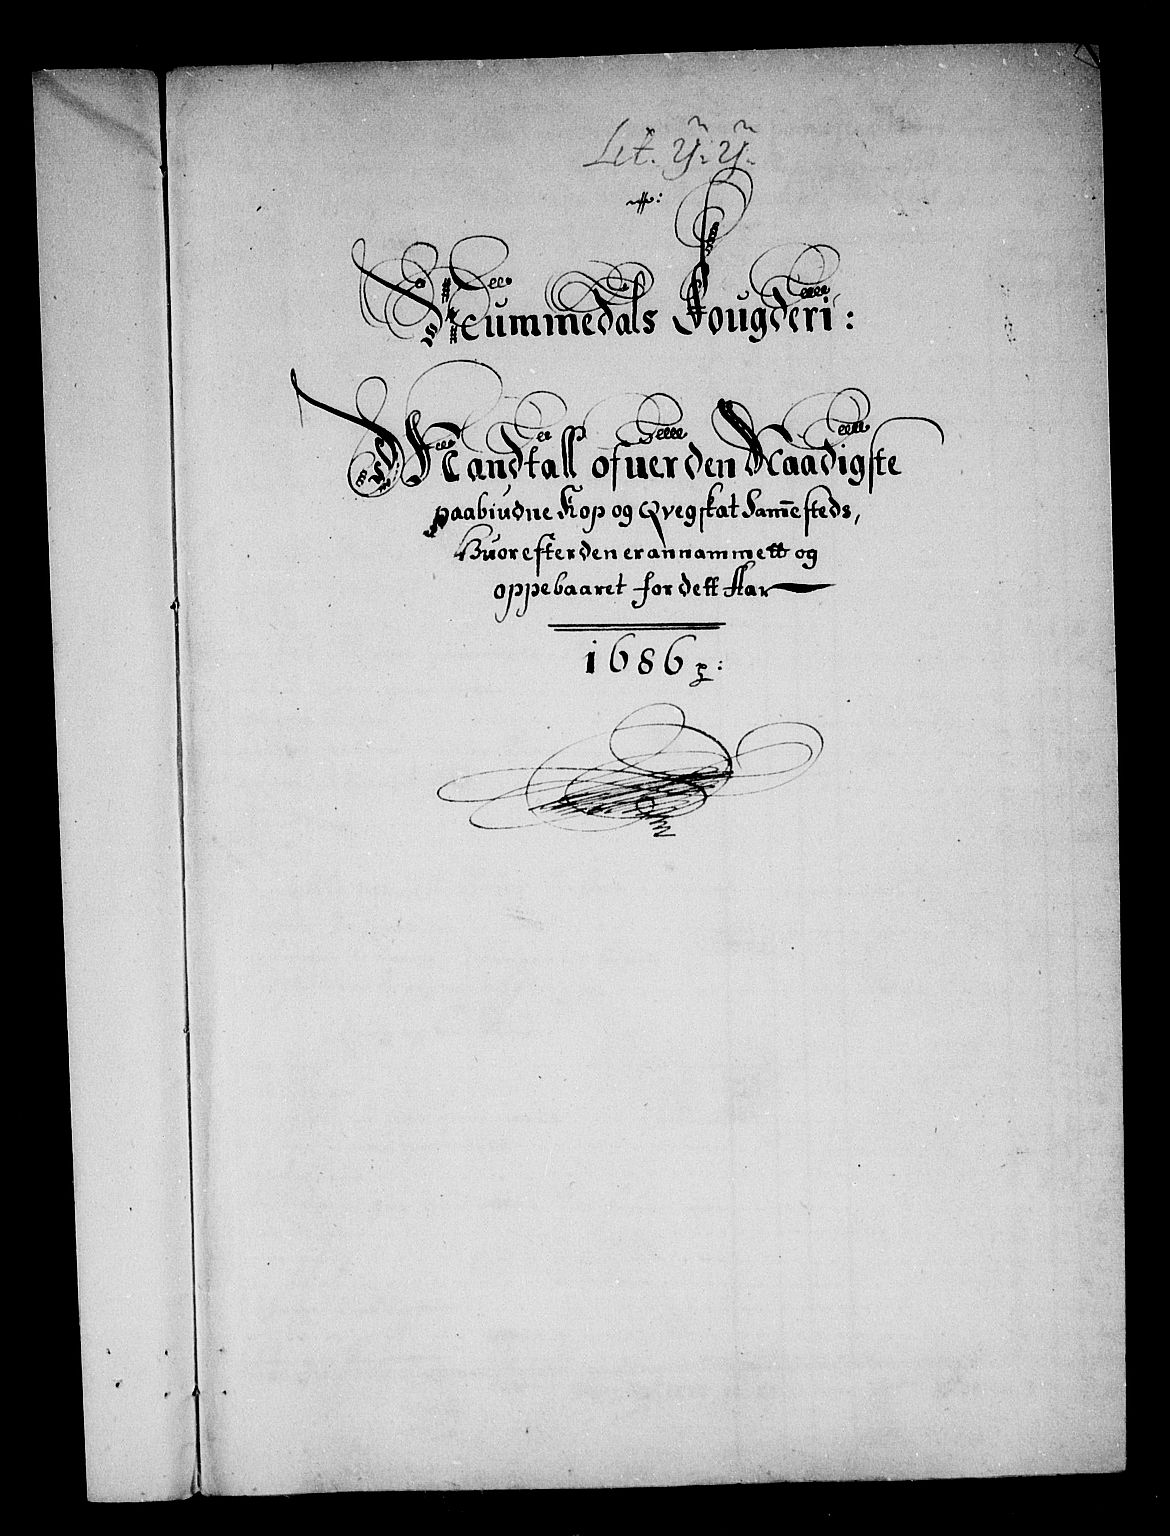 Lit. ÿ: ÿ:
Nummedals Fougderi:
Mandtall ofuer den Naadigste
paabiudne Kop og Qvegskat Sam̄esteds,
Huorefter den er annammett og
oppebaaret for dett Aar
1686